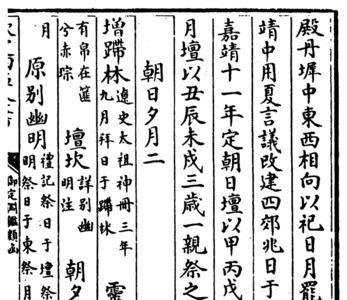 殿丹墀中東西相向以祀日月罷
靖中用夏言議改建四郊兆日于
嘉靖十一年定朝日壇以甲丙戊
月壇以丑辰未戌三歳一親祭之
朝日夕月二
增蹛林
遼史太祖神冊三年
九月拜日于蹛林
有帛在篚
兮赤琮
壇坎
詳别幽
明注
朝夕
月
原别幽明
禮記祭日于壇祭
明祭日于東祭月
御定淵鑑類函